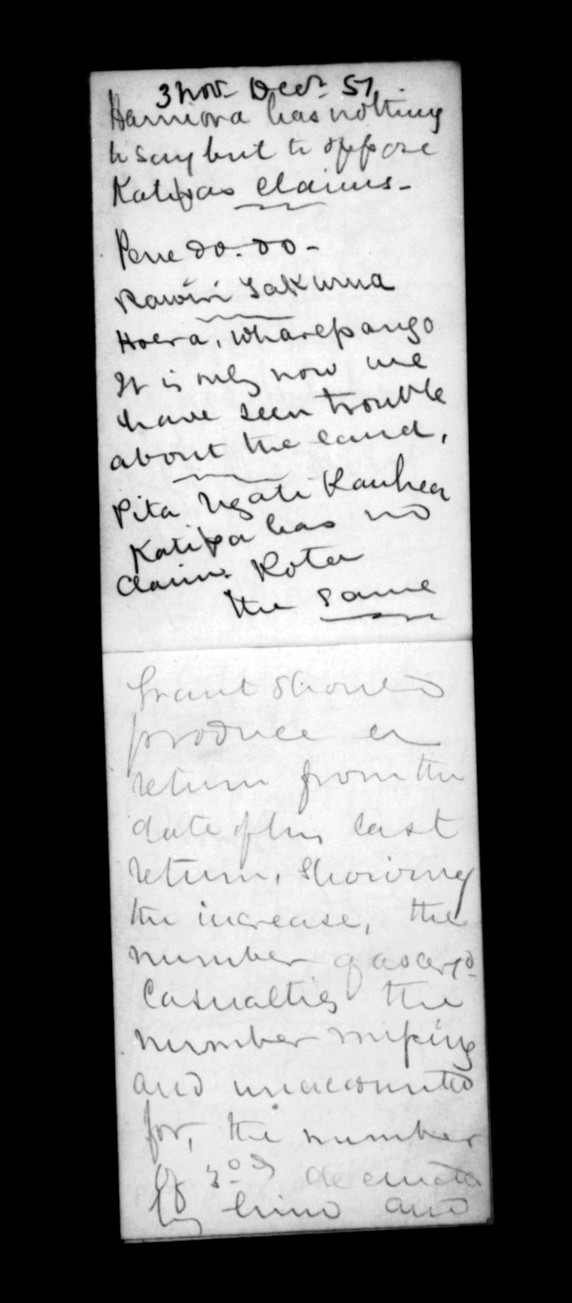 3 Nov. Decr. 51
Hamiora has nothing
to say but to oppose
Katipas claims -
Pene do. do -
Rawiri Takurua
Hoera, Wharepango
It is only now we
have seen trouble
about the land,
Pita Ngati Kauhea
Katipa has no
claim. Rota
the same
Grant should
produce a
return from the
date of his last
return, showing
the increase, the
number of
casualties the
number missing
and unaccounted
for, the number
of
by him and